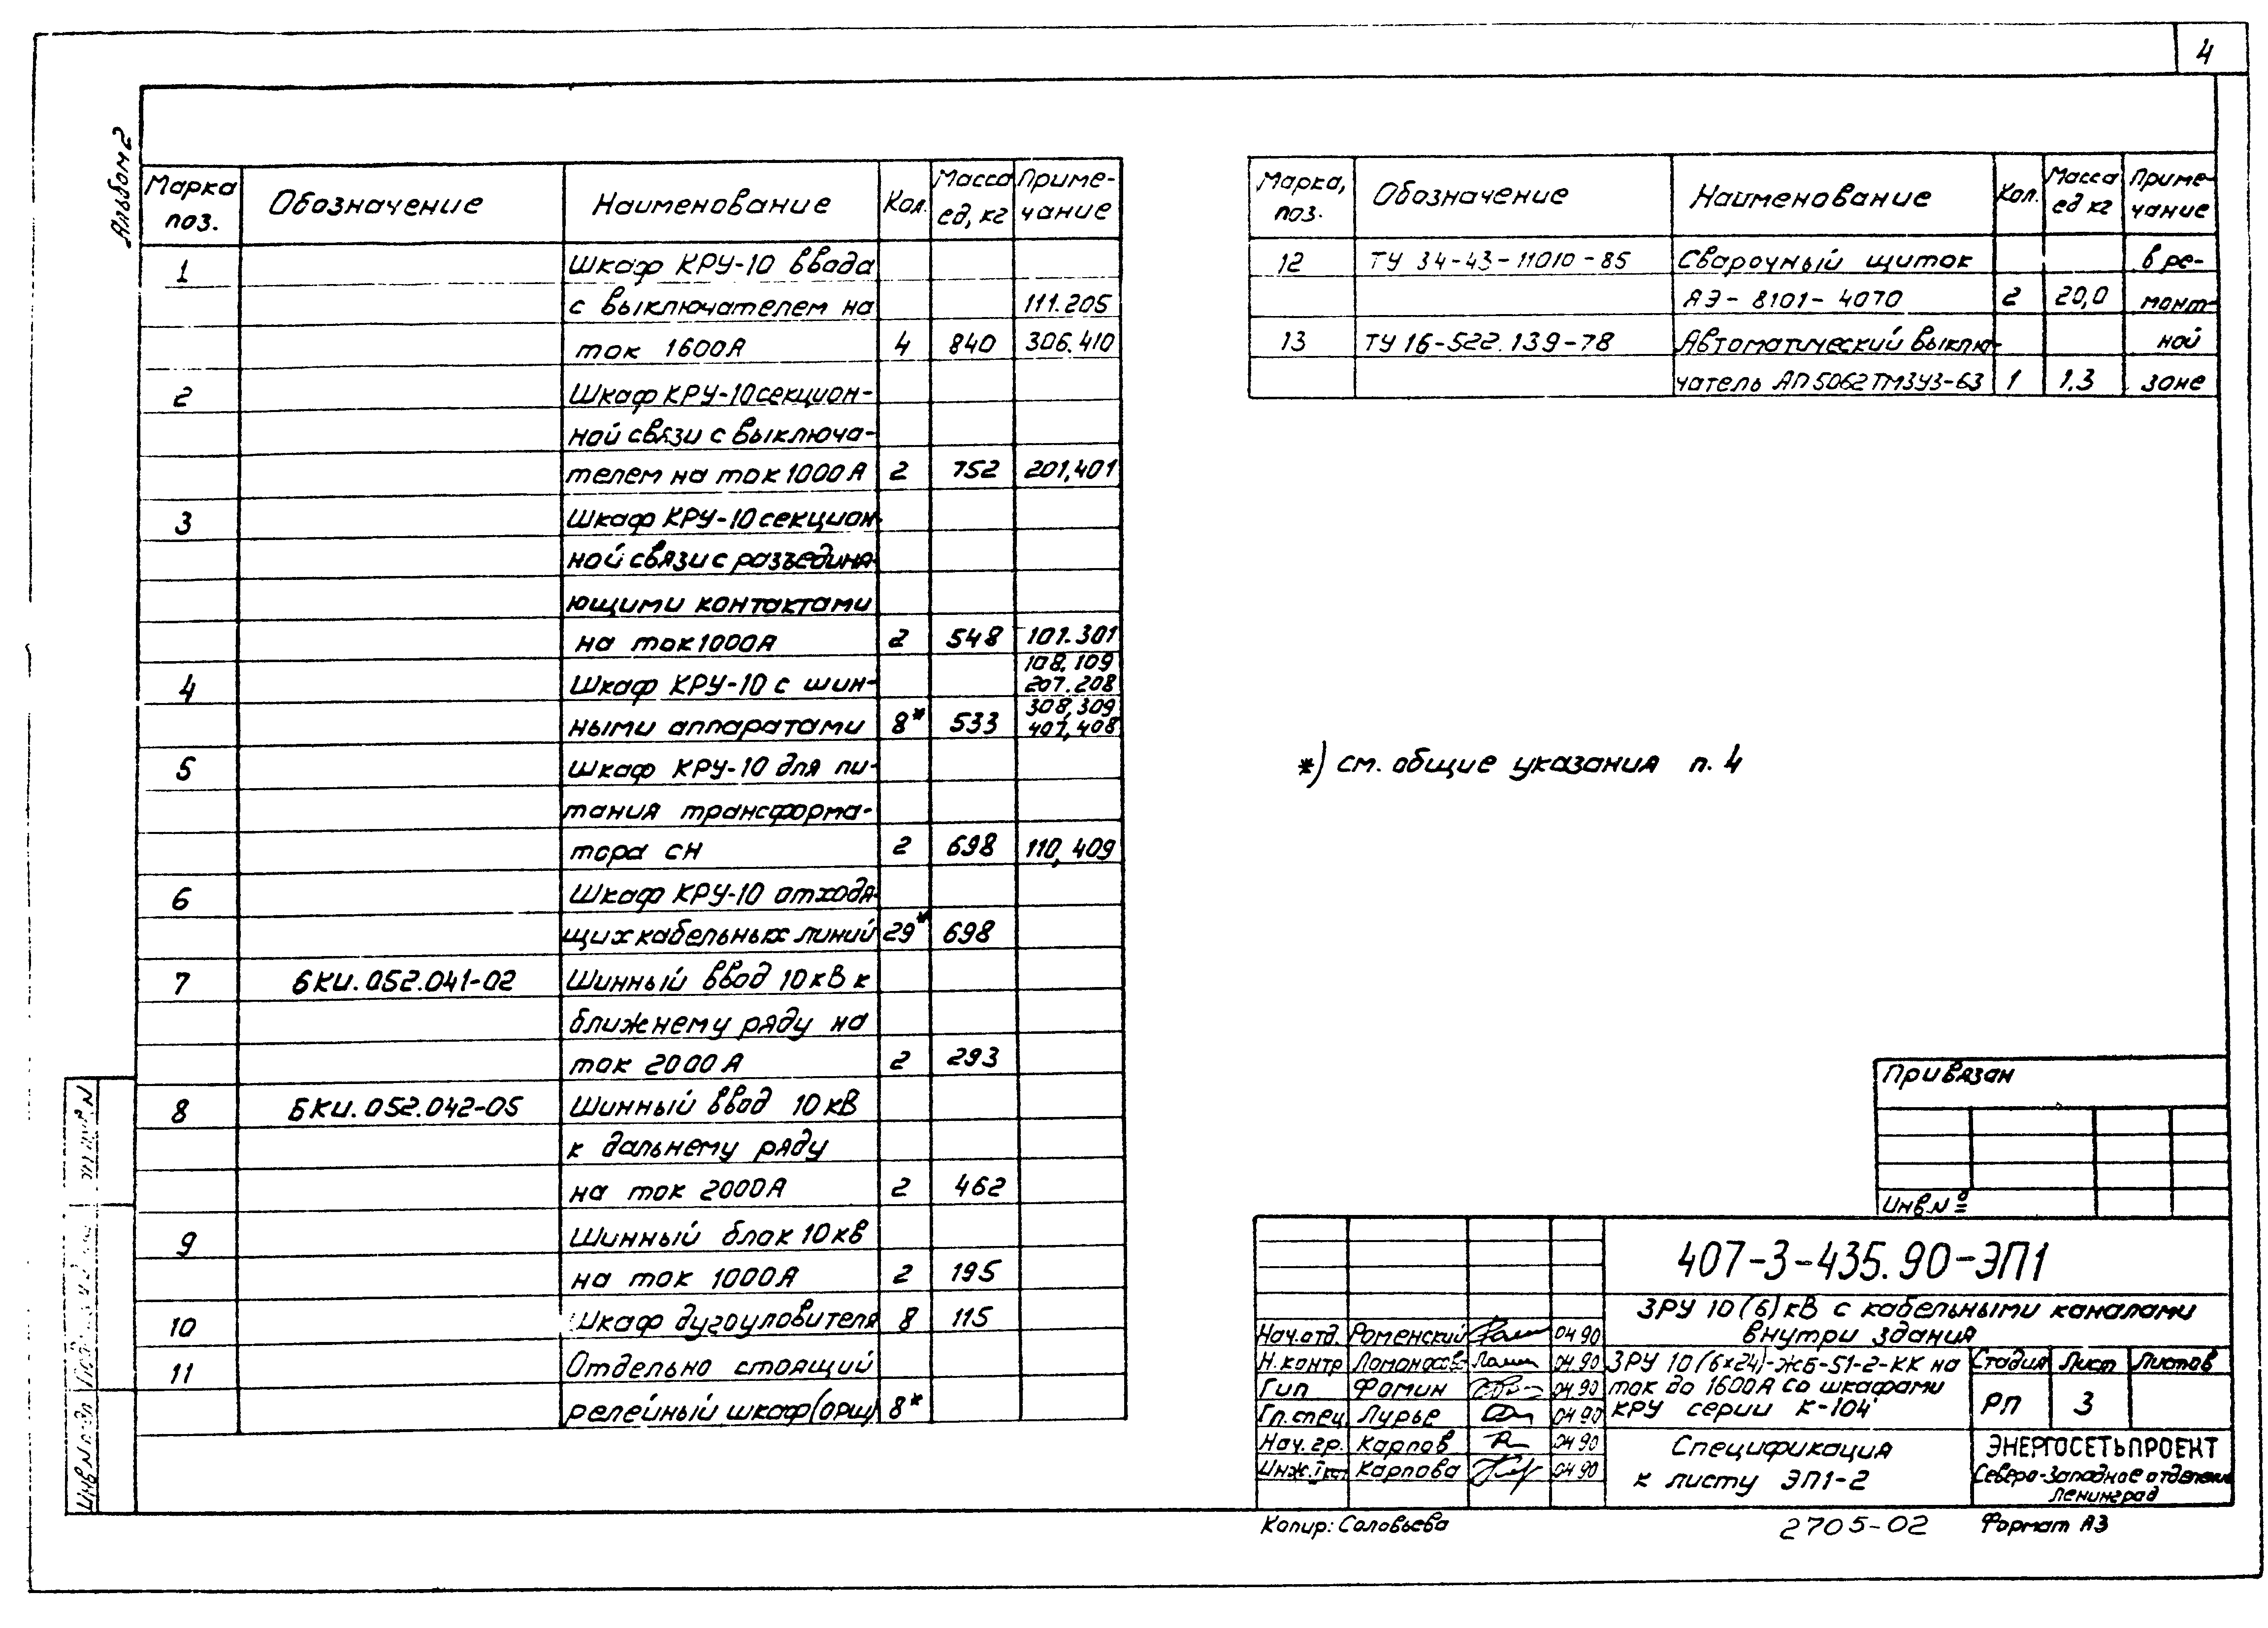 4
Альбом 2
Марка поз. Обозначение Наименование Кол. Масса ед, кг Приме-чание
1 Шкаф КРУ-10 ввода
с выключателем на 111.205
ток 1600А 4 840 306.410
2 Шкаф КРУ-10 секцион-
ной связи с выключа-
телем на ток 1000 А 2 752 201,401
3 Шкаф КРУ-10 секцион-
ной связи с разъединя-
ющими контактами
на ток 1000А 2 548 101.301
108. 109
4 Шкаф КРУ-10 с шин- 207.208
308,309
ными аппаратами 8* 533 407,408
5 Шкаф КРУ-10 для пи-
тания трансформа-
тора СН 2 698 110, 409
6 Шкаф КРУ-10 отходя-
щих кабельных линий 29* 698
7 6КИ.052.041-02 Шинный ввод 10 кВ к
ближнему ряду на
ток 2000 А 2 293
8 6КИ.052.042-05 Шинный ввод 10 кВ
к дальнему ряду
на ток 2000А 2 462
9 Шинный блок 10 кв
на ток 1000А 2 195
10 Шкаф дугоуловителя 8 115
11 Отдельно стоящий
релейный шкаф (ОРШ) 8*
Марка, поз. Обозначение Наименование Кол. Масса ед кг Приме-чание
12 ТУ 34-43-11010-85 Сварочный щиток в ре-
ЯЭ-8101-4070 2 20,0 монт-
13 ТУ 16-522.139-78 Автоматический выклю- ной
чатель АП5062ТМ3У3-63 1 1,3 зоне
*) см. общие указания п. 4
Привязан
Инв.№
407-3-435.90-ЭП1
ЗРУ 10(6)кВ с кабельными каналами
внутри здания
Нач.отд. Роменский 04 90
Н.контр Ломоносов 04.90 ЗРУ 10 (6×24)-ЖБ-51-2-КК на Стадия Лист Листов
Гип Фомин 04.90 ток до 1600А со шкафами
Гл.спец. Лурье 04 90 КРУ серии К-104 РП 3
Нач. гр. Карпов 04 90 Спецификация ЭНЕРГОСЕТЬПРОЕКТ
Инж. Карпова 04 90 к листу ЭП1-2 Северо-Западное отделение
Ленинград
Копир: Соловьева 2705-02 Формат А3
Инв.N подл